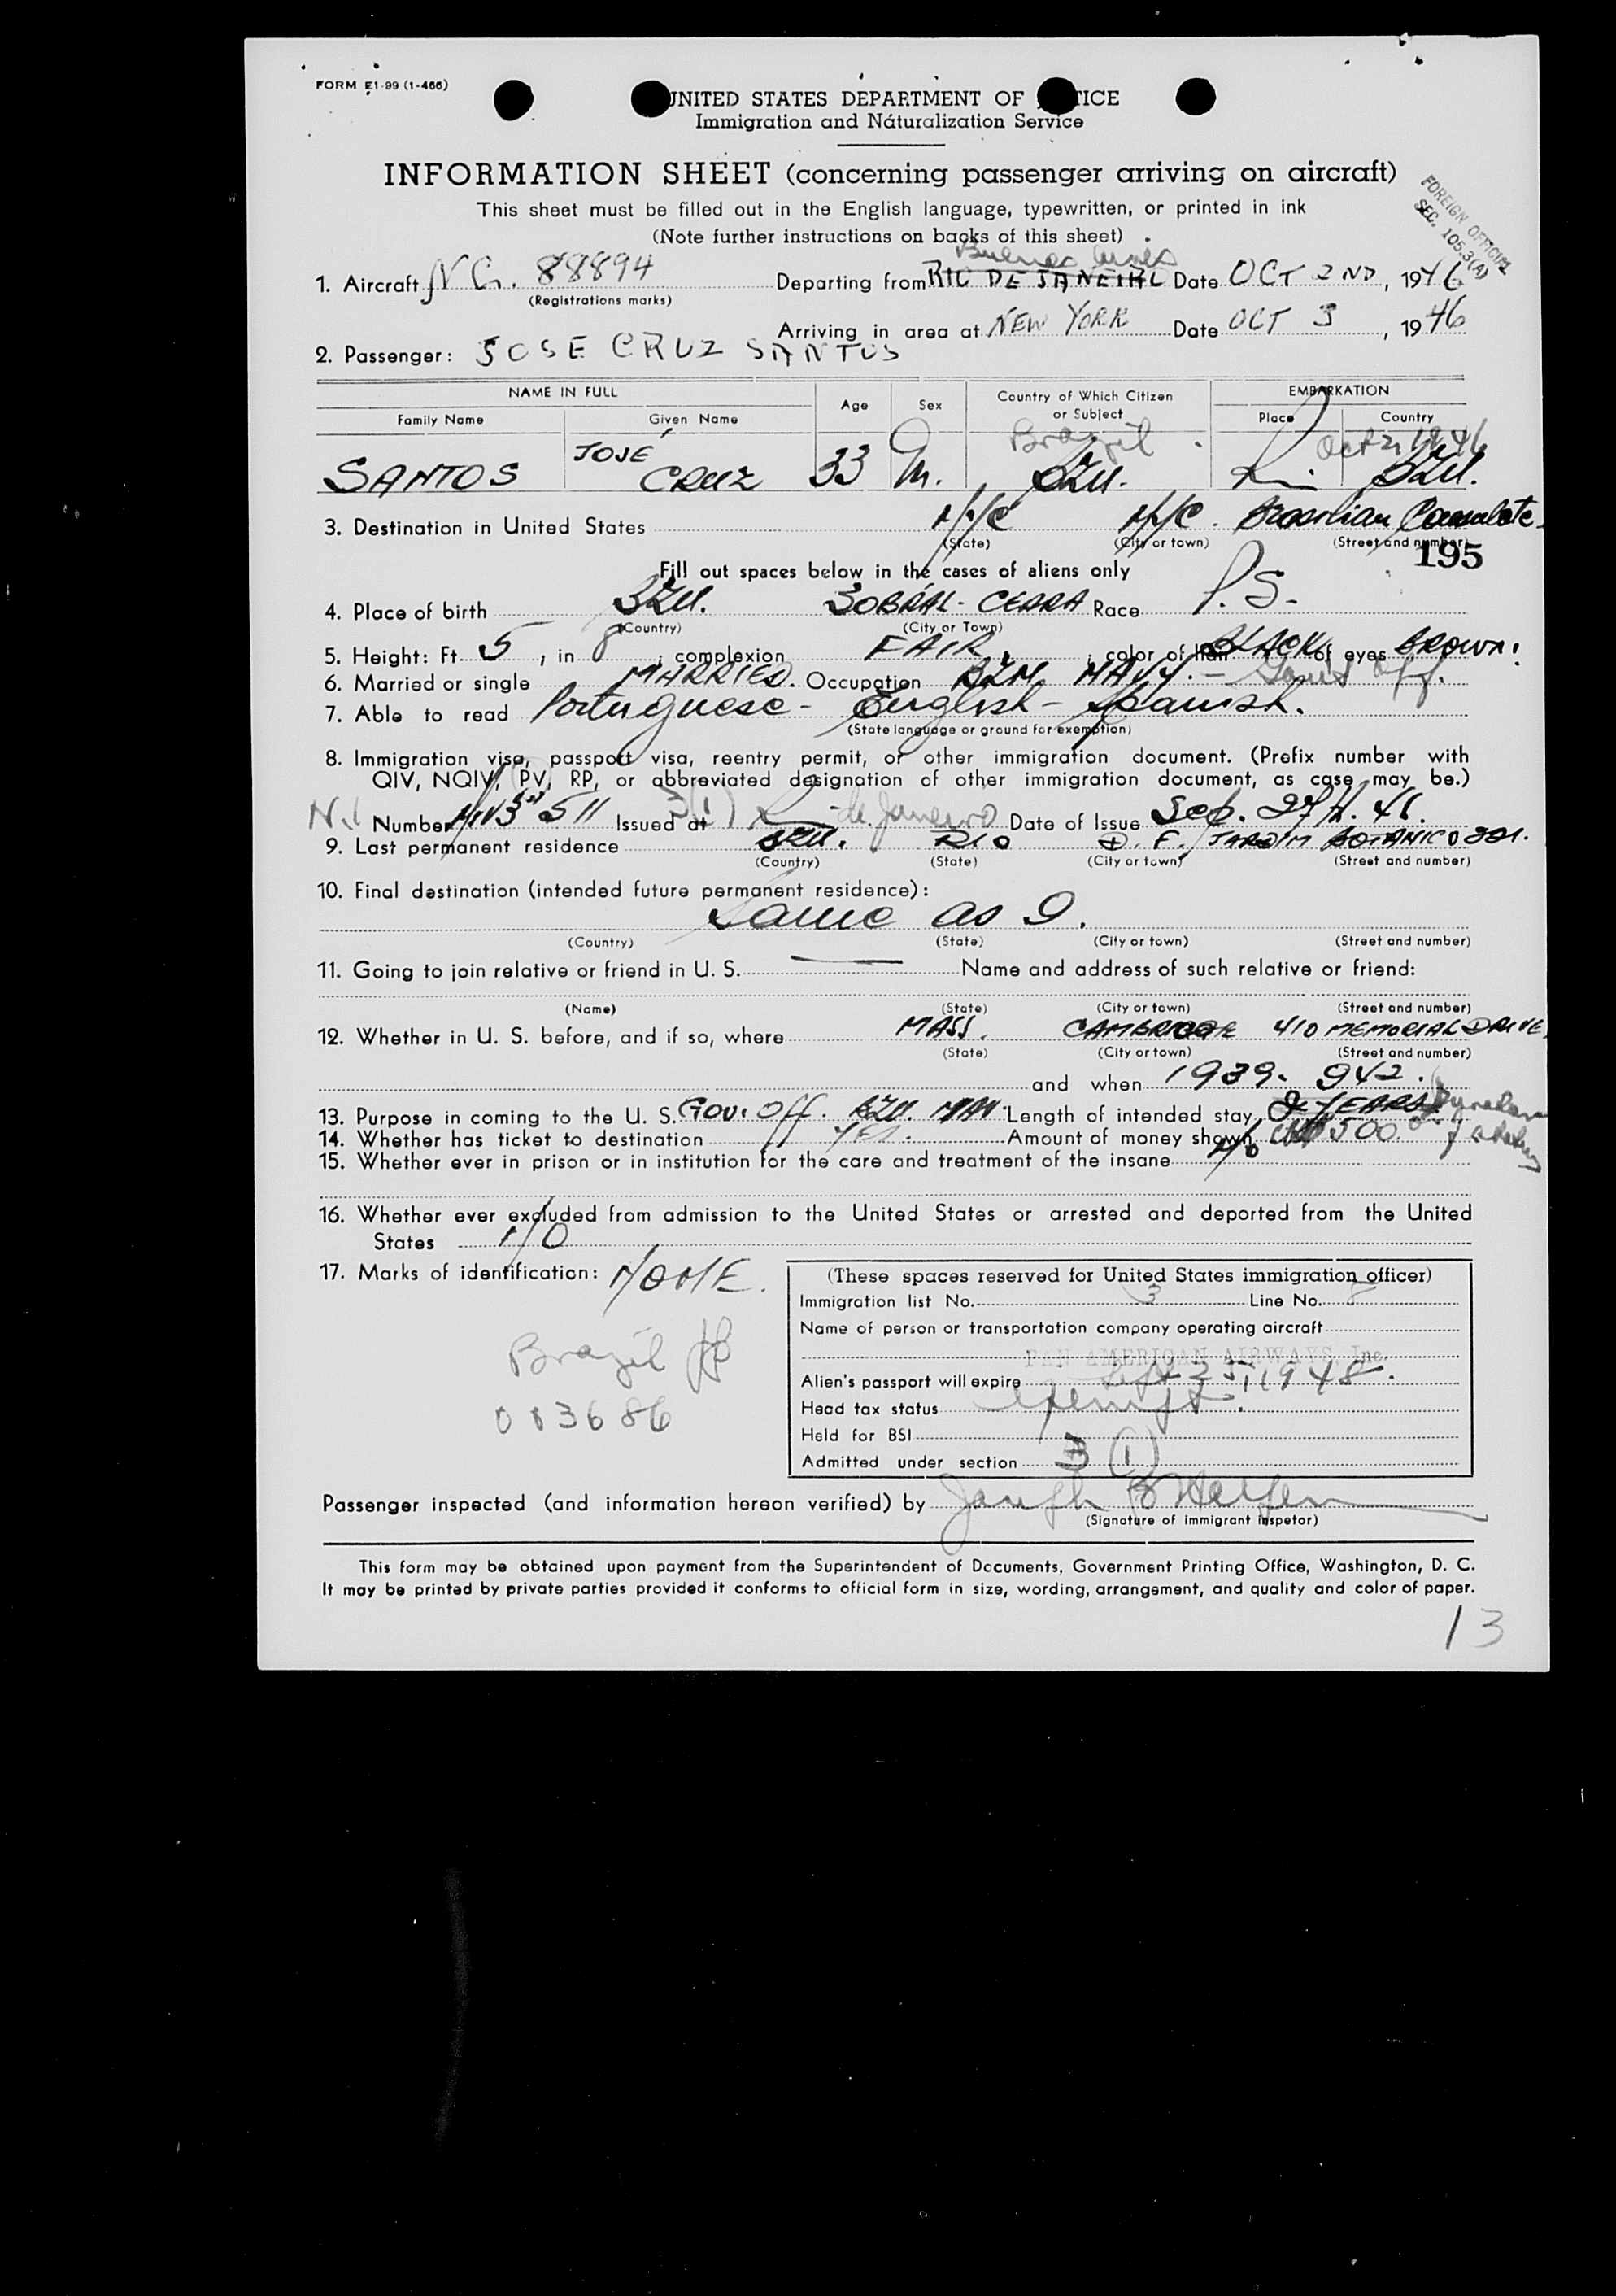 FORM E1-99 (1-466)
UNITED STATES DEPARTMENT OF TICE
Immigration and Naturalization Service
INFORMATION SHEET (concerning passenger arriving on aircraft)
This sheet must be filled out in the English language, typewritten, or printed in ink
(Note further instructions on backs of this sheet)
FOREIGN OFFICIAL
SEC. 105.3(A)
Buenos Aires
1. Aircraft NC. 88894 Departing from RIO DE JANEIRO Date OCT 2ND, 1946
(Registrations marks)
Arriving in area at NEW YORK Date OCT 3, 1946
2. Passenger: JOSE CRUZ SANTOS
NAME IN FULL Age Sex Country of Which Citizen or Subject EMBARKATION
Family Name Given Name Place Country
Brazil Oct 2, 1946
SANTOS JOSÉ CRUZ 33 M. BZIL. Rio BZIL.
3. Destination in United States N/C N/C. Brasilian Consulate
(State) (City or town) (Street and number)
195
Fill out spaces below in the cases of aliens only
4. Place of birth BZIL. SOBRAL - CEARA Race P.S.
(Country) (City or Town)
5. Height: Ft. 5, in 8; complexion FAIR; color of hair BLACK of eyes BROWN.
6. Married or single MARRIED. Occupation BZIL NAVY. - Gov't Off.
7. Able to read Portuguese - English - Spanish.
(State language or ground for exemption)
8. Immigration visa, passport visa, reentry permit, or other immigration document. (Prefix number with
QIV, NQIV, PV, RP, or abbreviated designation of other immigration document, as case may be.)
Number 511 Issued at 3(1) Rio de Janeiro Date of Issue Sep. 27th. 46.
9. Last permanent residence BZIL. RIO D. F. JARDIM BOTANICO 301.
(Country) (State) (City or town) (Street and number)
10. Final destination (intended future permanent residence):
Same as 9.
(Country) (State) (City or town) (Street and number)
11. Going to join relative or friend in U. S. Name and address of such relative or friend:
(Name) (State) (City or town) (Street and number)
12. Whether in U. S. before, and if so, where MASS. CAMBRIDGE 410 MEMORIAL DRIVE
(State) (City or town) (Street and number)
and when 1939. 942.
13. Purpose in coming to the U. S. GOV. Off. BZIL. NAV. Length of intended stay 2 YEARS Duration
14. Whether has ticket to destination YES. Amount of money shown 500 of status
15. Whether ever in prison or in institution for the care and treatment of the insane No
16. Whether ever excluded from admission to the United States or arrested and deported from the United
States NO
17. Marks of identification: NONE.
Brazil
003686
(These spaces reserved for United States immigration officer)
Immigration list No. 3 Line No. 8
Name of person or transportation company operating aircraft
PAN AMERICAN AIRWAYS, Inc.
Alien's passport will expire Sept 25, 1948.
Head tax status exempt.
Held for BSI
Admitted under section 3 (1)
Passenger inspected (and information hereon verified) by Joseph B
(Signature of immigrant inspetor)
This form may be obtained upon payment from the Superintendent of Documents, Government Printing Office, Washington, D. C.
It may be printed by private parties provided it conforms to official form in size, wording, arrangement, and quality and color of paper.
13